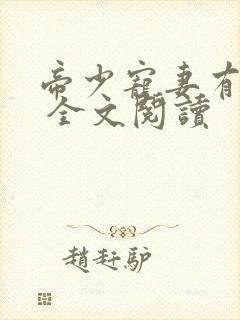 帝少寵妻有
全文閱讀
趙赶驴